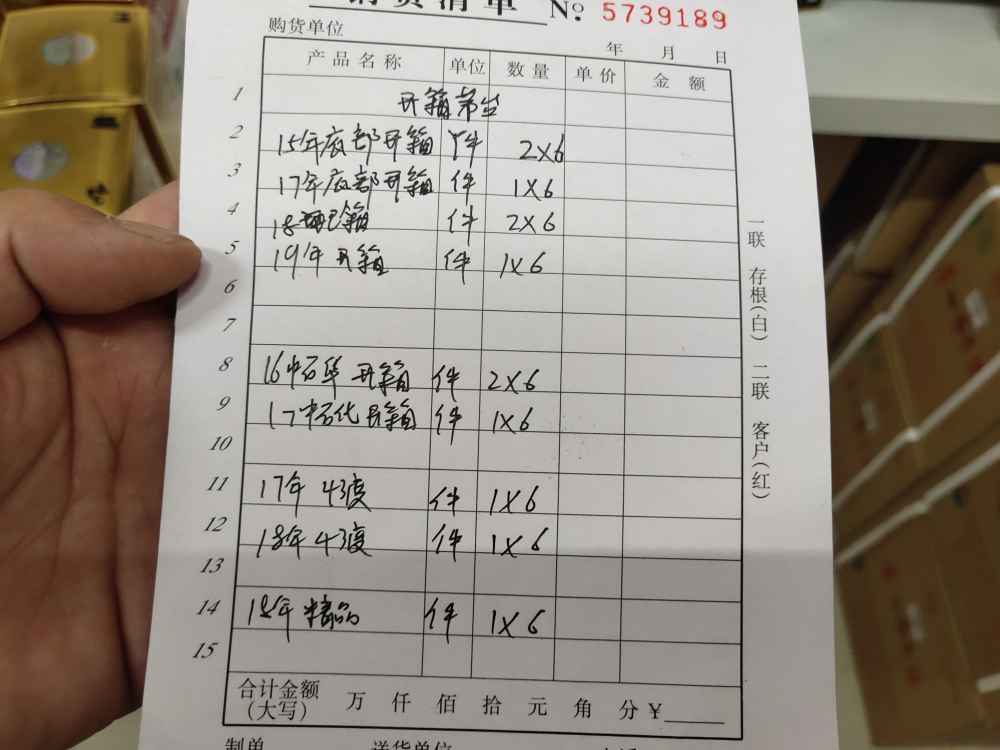 销货清单 № 5739189
购货单位
年 月 日
产品名称 单位 数量 单价 金额
1 开箱常出
2 15年底部开箱 件 2X6
3 17年底部开箱 件 1X6
4 18 箱 件 2X6
5 19年开箱 件 1X6
6
7
8 16中石华开箱 件 2X6
9 17中石化开箱 件 1X6
10
11 17年 43度 件 1X6
12 18年 43度 件 1X6
13
14 18年精品 件 1X6
15
合计金额
(大写) 万 仟 佰 拾 元 角 分 ¥
制单 送货单位
一联 存根(白) 二联 客户(红)